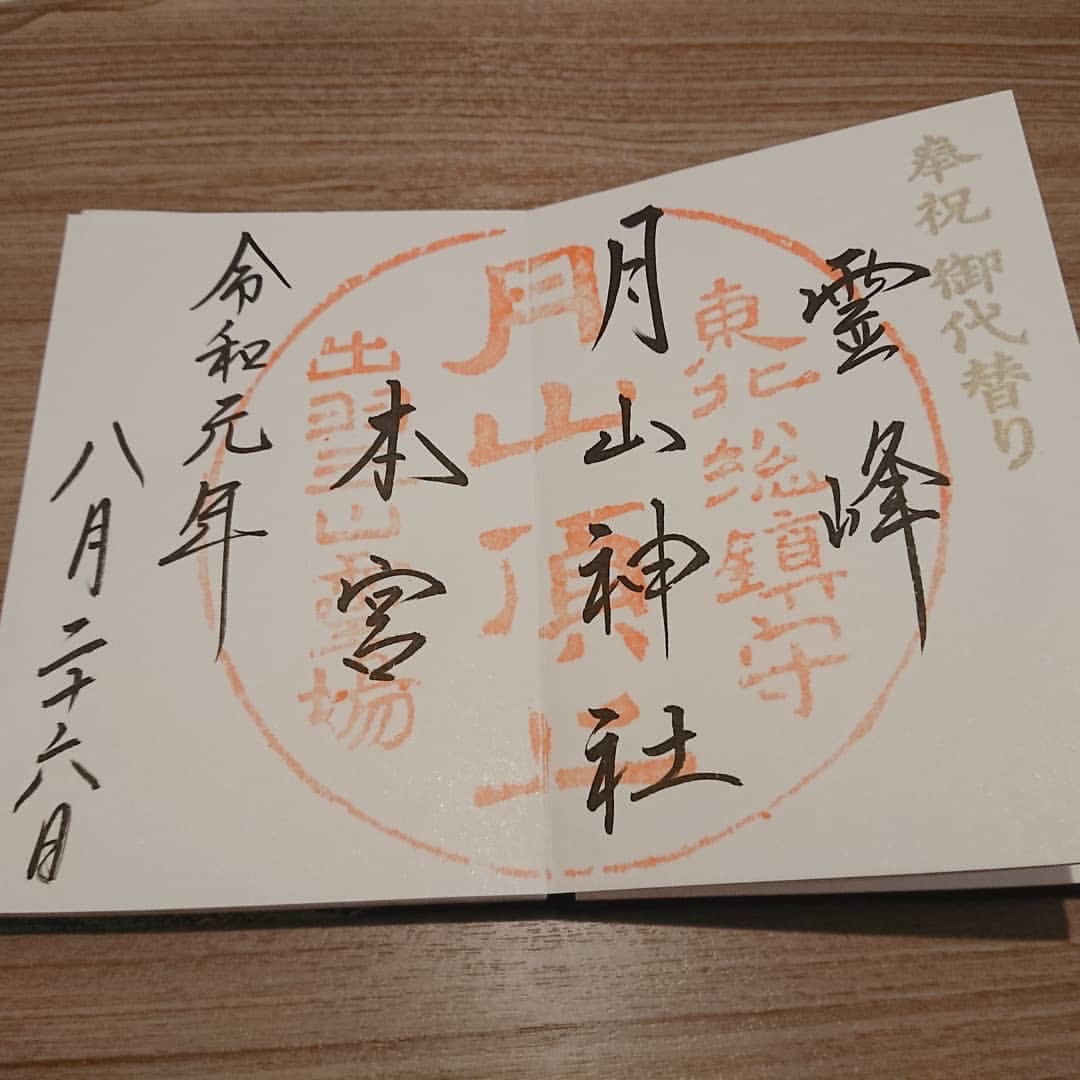 奉祝 御代替り
霊峰
東北総鎮守
月山神社
月山頂上
本宮
出羽三山霊場
令和元年
八月二十六日